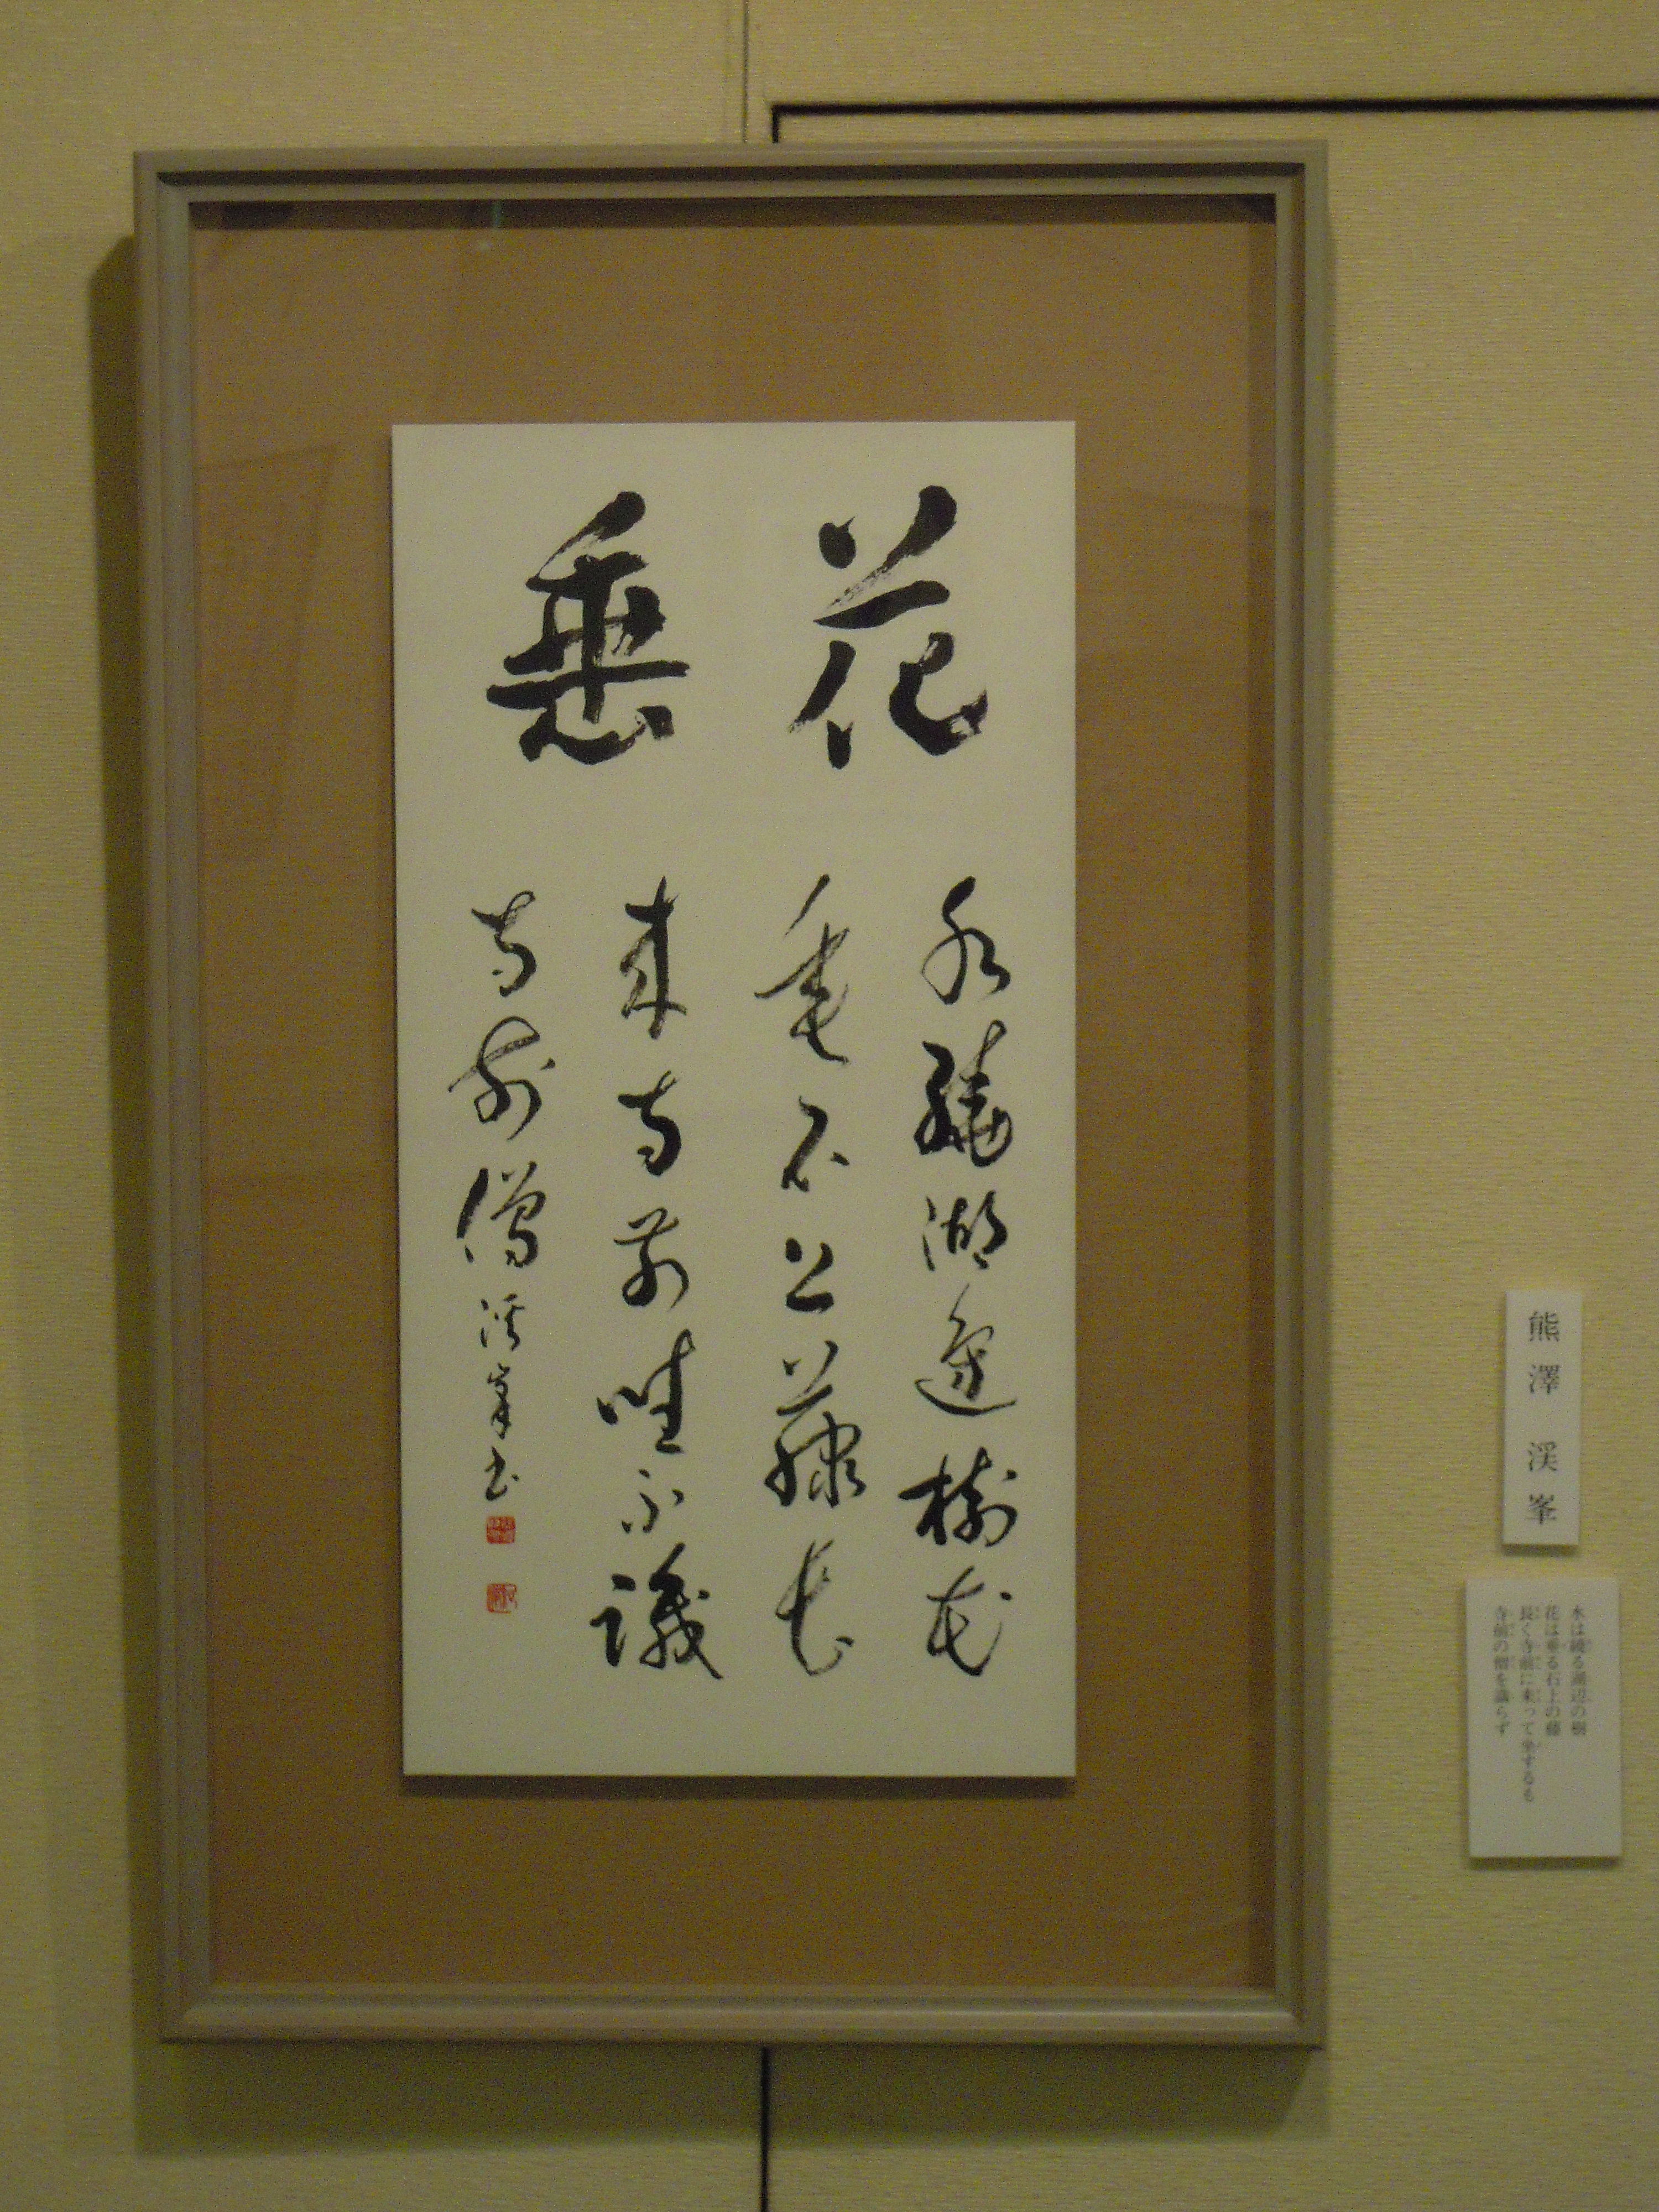 花垂
水繞湖邊樹花
垂石上藤長
来寺前坐不識
寺前僧 渓峯書
熊澤 渓峯
水は繞る湖辺の樹
花は垂る石上の藤
長く寺前に来って坐するも
寺前の僧を識らず